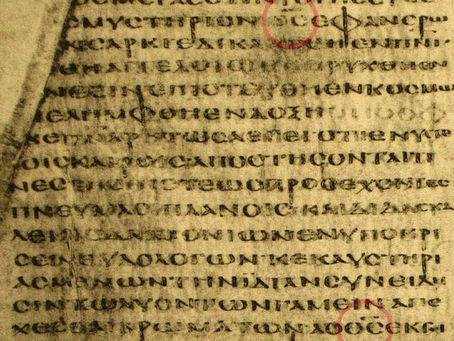 CΜΥCΤΗΡΙΟΝΘ̅C̅ΕΦΑΝΕΡΩ
ΝCΑΡΚΙΕΔΙΚΑΙΩΘΗΕΝΠΝΙ
ΘΗΑΓΓΕΛΟΙCΕΚΗΡΥΧΘΗΕΝ
ΝΕCΙΝΕΠΙCΤΕΥΘΗΕΝΚΟCΜΩ
ΝΕΛΗΜΦΘΗΕΝΔΟΞΗ
ΔΕΠΝΑΡΗΤΩCΛΕΓΕΙΟΤΙΕΝΥCΤΕ
ΟΙCΚΑΙΡΟΙCΑΠΟCΤΗCΟΝΤΑΙΤΙ
ΝΕCΤΗCΠΙCΤΕΩCΠΡΟCΕΧΟΝΤΕC
ΠΝΕΥΜΑCΙΝΠΛΑΝΟΙCΚΑΙΔΙΔΑCΚΑ
ΛΕΙΑΙCΔΑΙΜΟΝΙΩΝΕΝΥΠΟΚΡΙ
CΕΙΨΕΥΔΟΛΟΓΩΝΚΕΚΑΥCΤΗΡΙ
ΑCΜΕΝΩΝΤΗΝΙΔΙΑΝCΥΝΕΙΔΗ
CΙΝΚΩΛΥΟΝΤΩΝΓΑΜΕΙΝΑΠΕ
ΧΕCΘΑΙΒΡΩΜΑΤΩΝΑΟΘ̅C̅ΕΚΤΙ